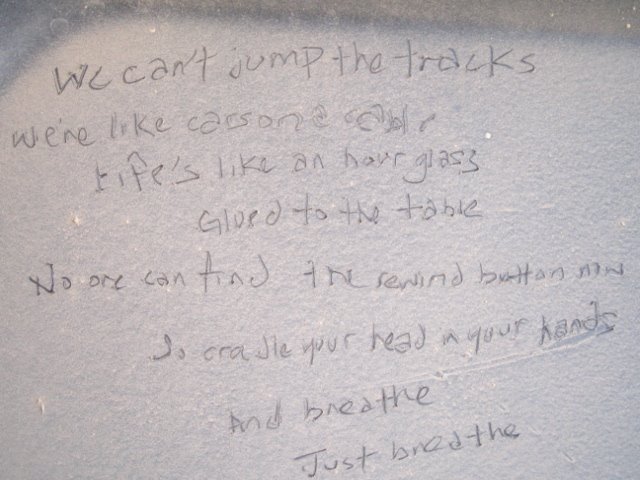 We can't jump the tracks
we're like cars on a cable
Life's like an hourglass
Glued to the table
No one can find the rewind button now
So cradle your head in your hands
And breathe
Just breathe